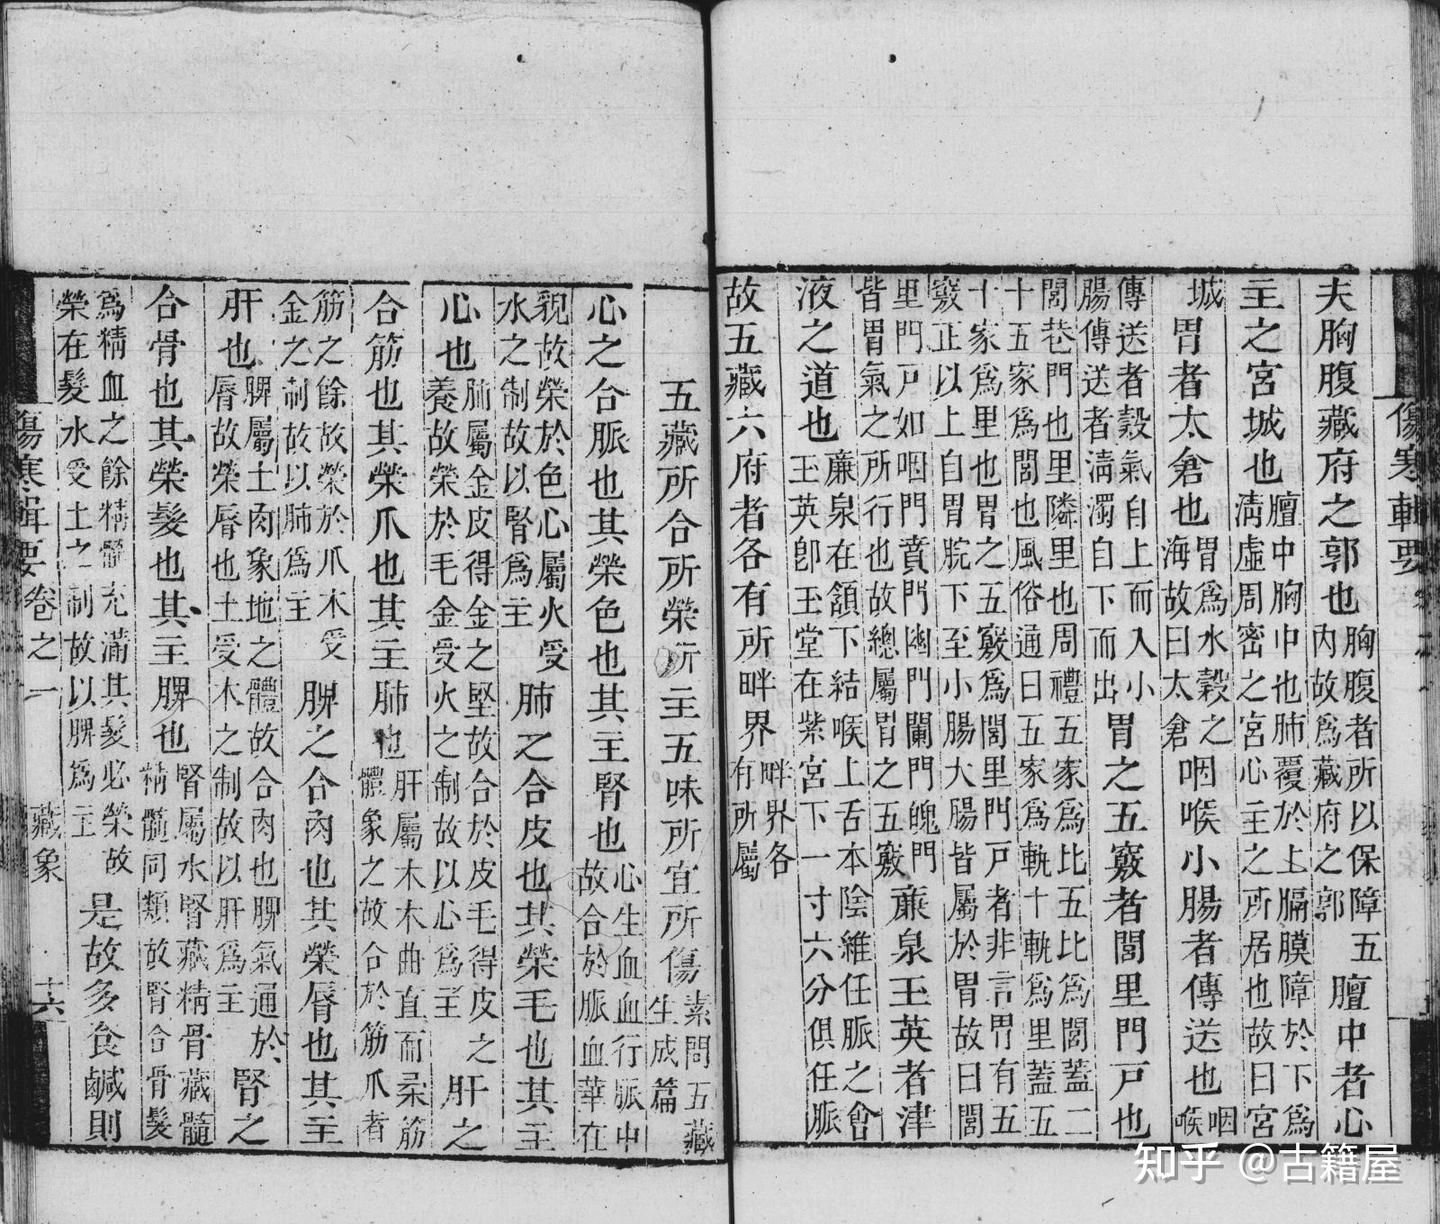 傷寒輯要
夫胸腹藏府之郭也胸腹者所以保障五內故爲藏府之郭膻中者心
主之宮城也膻中胸中也肺覆於上膈膜障於下爲淸虛周密之宮心主之所居也故曰宮
城胃者太倉也胃爲水穀之海故曰太倉咽喉小腸者傳送也咽喉
傳送者穀氣自上而入小腸傳送者淸濁自下而出胃之五竅者閭里門戸也
閭巷門也里隣里也周禮五家爲比五比爲閭蓋二十五家爲閭也風俗通曰五家爲軌十軌爲里蓋五
十家爲里也胃之五竅爲閭里門戸者非言胃有五竅正以上自胃脘下至小腸大腸皆屬於胃故曰閭
里門戸如咽門賁門幽門闌門魄門皆胃氣之所行也故總屬胃之五竅廉泉玉英者津
液之道也廉泉在頷下結喉上舌本陰維任脈之會玉英卽玉堂在紫宮下一寸六分俱任脈
故五藏六府者各有所畔界畔界各有所屬
五藏所合所榮所主五味所宜所傷素問五藏生成篇
心之合脈也其榮色也其主腎也心生血血行脈中故合於脈血華在
貌故榮於色心屬火受水之制故以腎爲主肺之合皮也其榮毛也其主
心也肺屬金皮得金之堅故合於皮毛得皮之養故榮於毛金受火之制故以心爲主肝之
合筋也其榮爪也其主肺也肝屬木木曲直而柔筋體象之故合於筋爪者
筋之餘故榮於爪木受金之制故以肺爲主脾之合肉也其榮脣也其主
肝也脾屬土肉象地之體故合肉也脾氣通於脣故榮脣也土受木之制故以肝爲主腎之
合骨也其榮髮也其主脾也腎屬水腎藏精骨藏髓精髓同類故腎合骨髮
爲精血之餘精髓充滿其髮必榮故榮在髮水受土之制故以脾爲主是故多食鹹則
傷寒輯要卷之一 藏象 十六
知乎 @古籍屋